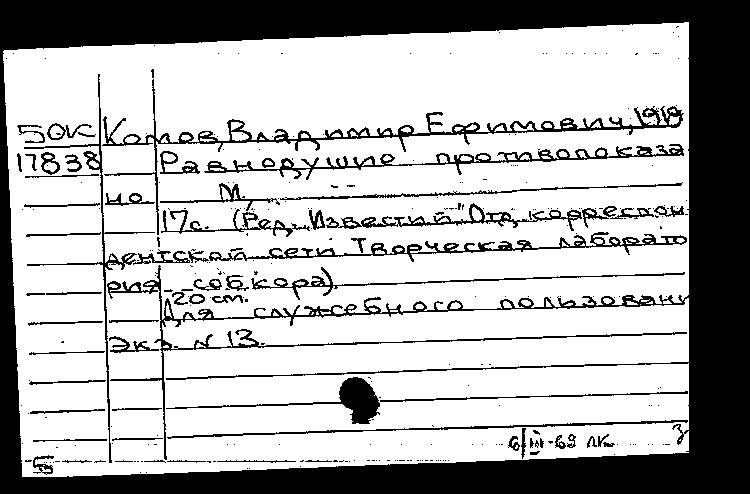 50К Котов, Владимир Ефимович, 1919
17838 Равнодушие противопоказа
но. М,
17с. (Ред. „Известий" Отд. корреспон
дентской сети. Творческая лаборато
рия собкора).
20 cm.
Для служебного пользовани
Экз. N 13.
6/III-69 ЛК
5